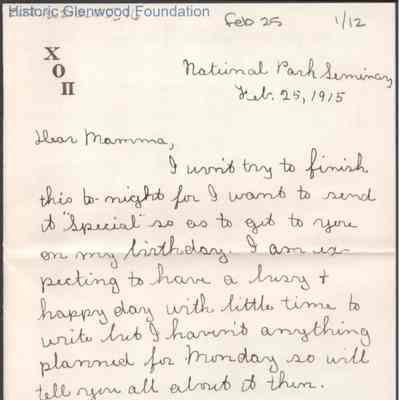 Historic Glenwood Foundation
Feb 25
1/12
X
O
Π
National Park Seminary
Feb. 25, 1915
Dear Mamma,
I won't try to finish
this to-night for I want to send
it "Special" so as to get to you
on my birthday. I am ex-
pecting to have a busy +
happy day with little time to
write but I haven't anything
planned for Monday so will
tell you all about it then.